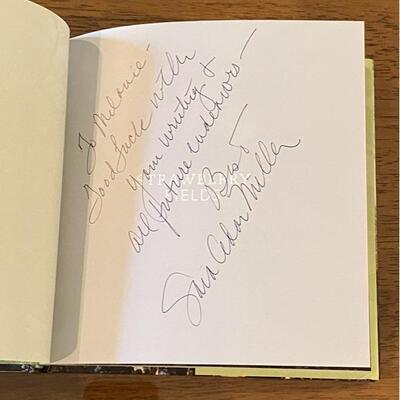 To Melanie –
Good luck with
your writing &
all future endeavors –
Best
Sara Cedar Miller
STRAWBERRY
FIELDS